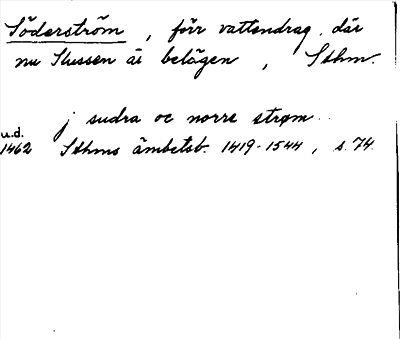 Söderström, förr vattendrag, där
nu Slussen är belägen, Sthm.
j sudra oc norre strøm
u.d.
1462 Sthms ämbetsb. 1419-1544, s. 74